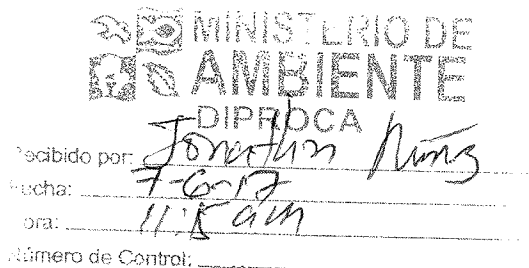 MINISTERIO DE
AMBIENTE
DIPROCA
Recibido por: Jonathan Núñez
Fecha: 7-6-17
Hora: 11:15 am
Número de Control: